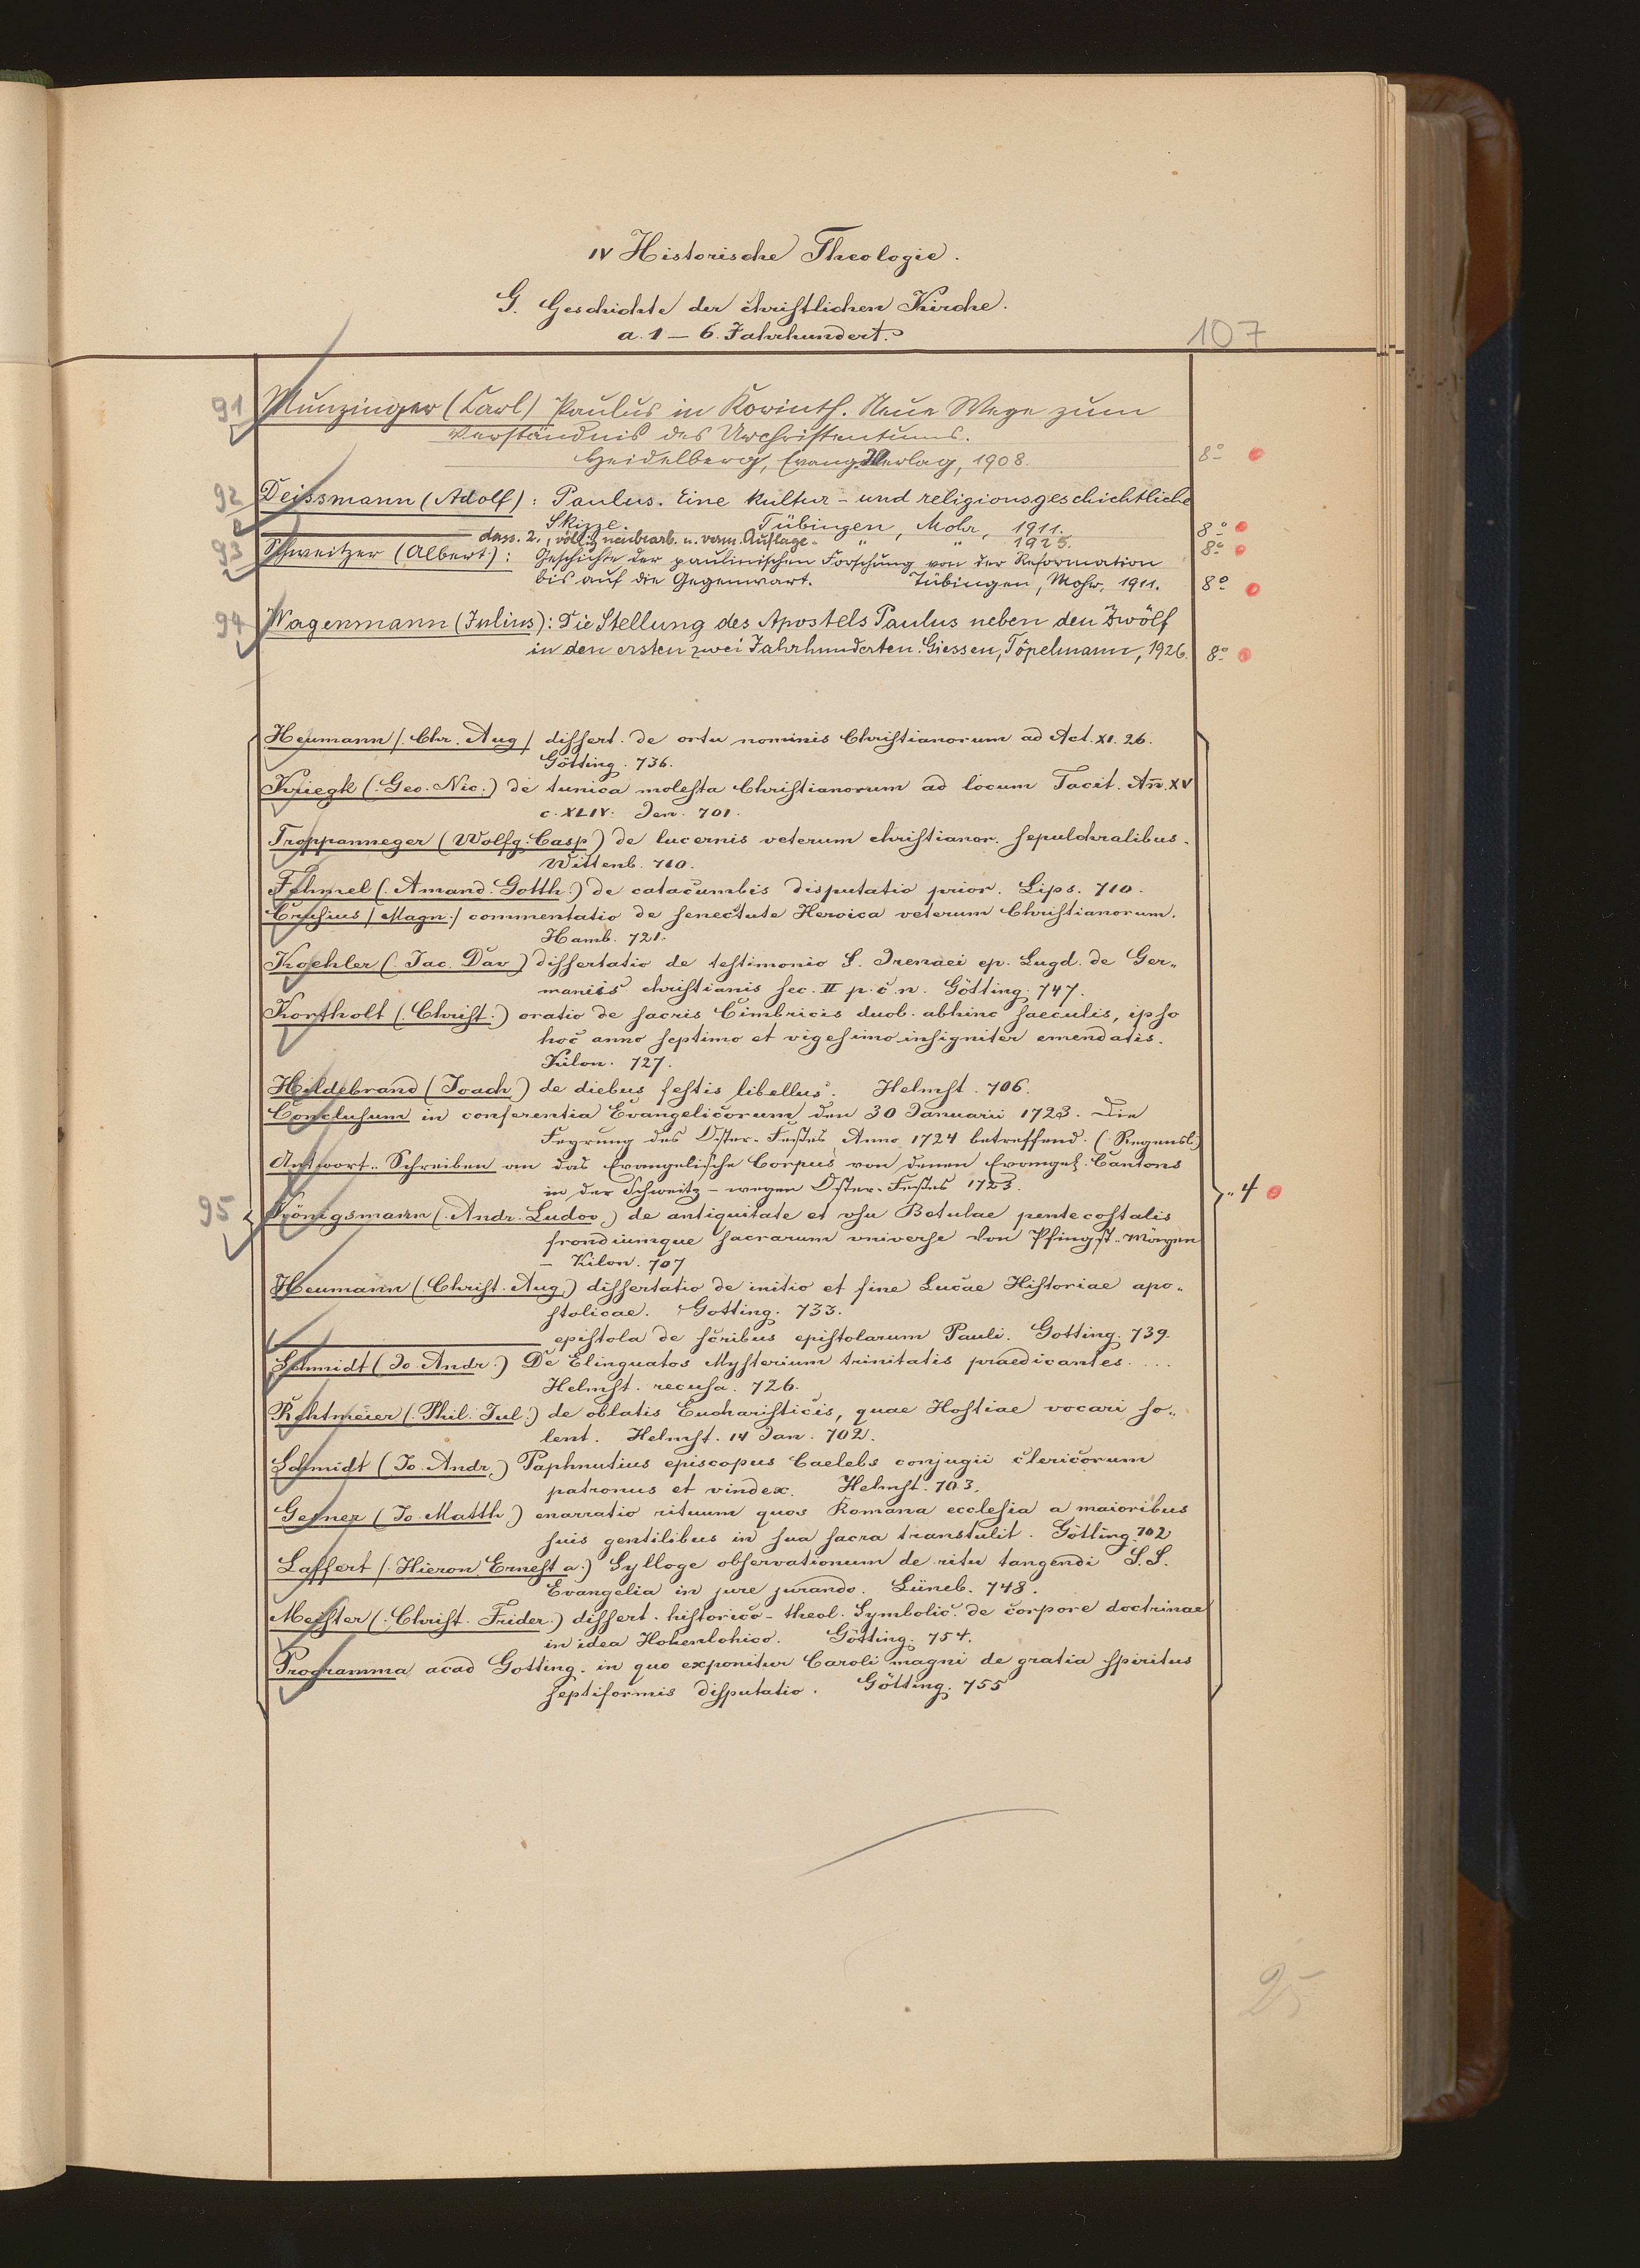 IV Historische Theologie.
G. Geschichte der christlichen Kirche.
a. 1 – 6. Jahrhundert.
107
91 Munzinger (Carl) Paulus in Korinth. Neue Wege zum
Verständnis des Urchristentums.
Heidelberg, Evang. Verlag, 1908. 8°
92 Deissmann (Adolf): Paulus. Eine kultur- und religionsgeschichtliche
Skizze. Tübingen, Mohr, 1911. 8°
dass. 2., völlig neubearb. u. verm. Auflage. " " 1925. 8°
93 Schweitzer (Albert): Geschichte der paulinischen Forschung von der Reformation
bis auf die Gegenwart. Tübingen, Mohr, 1911. 8°
94 Wagenmann (Julius): Die Stellung des Apostels Paulus neben den Zwölf
in den ersten zwei Jahrhunderten. Giessen, Töpelmann, 1926. 8°
Heumann (. Chr. Aug) dissert. de ortu nominis Christianorum ad Act. XI. 26.
Götting. 736.
Kriegk (. Geo. Nic.) de tunica molesta Christianorum ad locum Tacit. An̄. XV
c. XLIV. Jen. 701.
Troppanneger (Wolfg. Casp) de lucernis veterum christianor. sepulchralibus.
Wittenb. 710.
Fehmel (. Amand. Gotth.) de catacumbis disputatio prior. Lips. 710.
Crusius (Magn.) commentatio de senectute Heroica veterum Christianorum.
Hamb. 721.
Koehler (. Jac. Dav) dissertatio de testimonio S. Irenaei ep. Lugd. de Ger„
maniis christianis sec. II p. c. n. Götting. 747.
Kortholt (. Christ.) oratio de sacris Cimbricis duob. abhinc saeculis, ipso
hoc anno septimo et vigesimo insigniter emendatis.
Kilon. 727.
Hildebrand (Joach) de diebus festis libellus. Helmst. 706.
Conclusum in conferentia Evangelicorum den 30 Januarii 1723. Die
Feyrung des Oster-Festes Anno 1724 betreffend. (. Regensb.)
Antwort-Schreiben an das Evangelische Corpus von denen Evangel. Cantons
in der Schweitz – wegen Oster-Festes 1723. „ 4
95 Königsmann (. Andr. Ludov.) de antiquitate et vsu Betulae pentecostalis
frondiumque sacrarum vniverse von Pfingst-Mäyen
– Kilon. 707
Heumann (. Christ. Aug.) dissertatio de initio et fine Lucae Historiae apo„
stolicae. Gotting. 733.
epistola de scribus epistolarum Pauli. Gotting. 739.
Schmidt (Jo. Andr.) De Elinguatos Mysterium trinitatis praedicantes....
Helmst. recusa. 726.
Rehtmeier (. Phil. Jul.) de oblatis Eucharisticis, quae Hostiae vocari so„
lent. Helmst. 14 Jan. 702.
Schmidt (Jo. Andr.) Paphnutius episcopus Caelebs conjugii clericorum
patronus et vindex. Helmst. 703.
Gesner (Jo. Matth.) enarratio rituum quos Romana ecclesia a maioribus
suis gentilibus in sua sacra transtulit. Götting. 702
Laffert (. Hieron Ernest a.) Sylloge observationum de ritu tangendi S.S.
Evangelia in jure jurando. Lüneb. 748.
Meister (. Christ. Frider.) dissert. historico-theol. Symbolic. de corpore doctrinae
in idea Hohenlohico. Götting. 754.
Programma acad Gotting. in quo exponitur Caroli magni de gratia spiritus
septiformis disputatio. Götting. 755
25